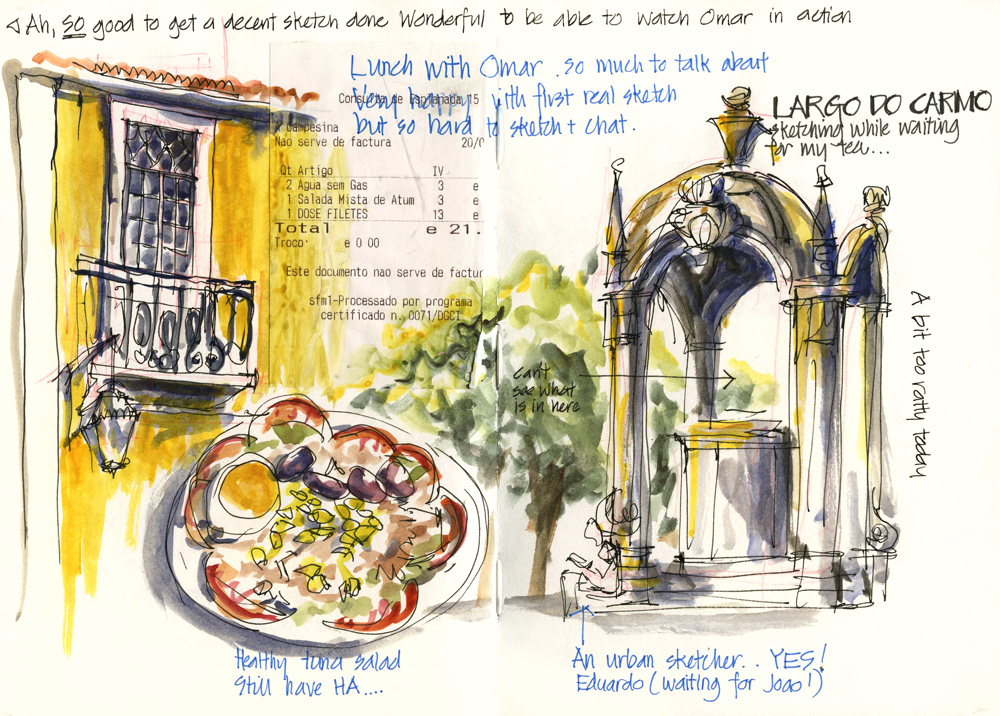 Ah, so good to get a decent sketch done Wonderful to be able to watch Omar in action
Lunch with Omar. so much to talk about
Very happy with first real sketch
but so hard to sketch + chat.
Consulta de Esplanada 15
A Campesina
Nao serve de factura 20/0
Qt Artigo IV
2 Agua sem Gas 3 e
1 Salada Mista de Atum 3 e
1 DOSE FILETES 13 e
Total e 21.
Troco· e 0 00
Este documento nao serve de factur
sfm1-Processado por programa
certificado n. 0071/DGCI
LARGO DO CARMO
sketching while waiting
for my tea...
can't
see what
is in here
A bit too ratty today
Healthy tuna salad
Still have HA....
An urban sketcher.. YES!
Eduardo (waiting for Joao!)